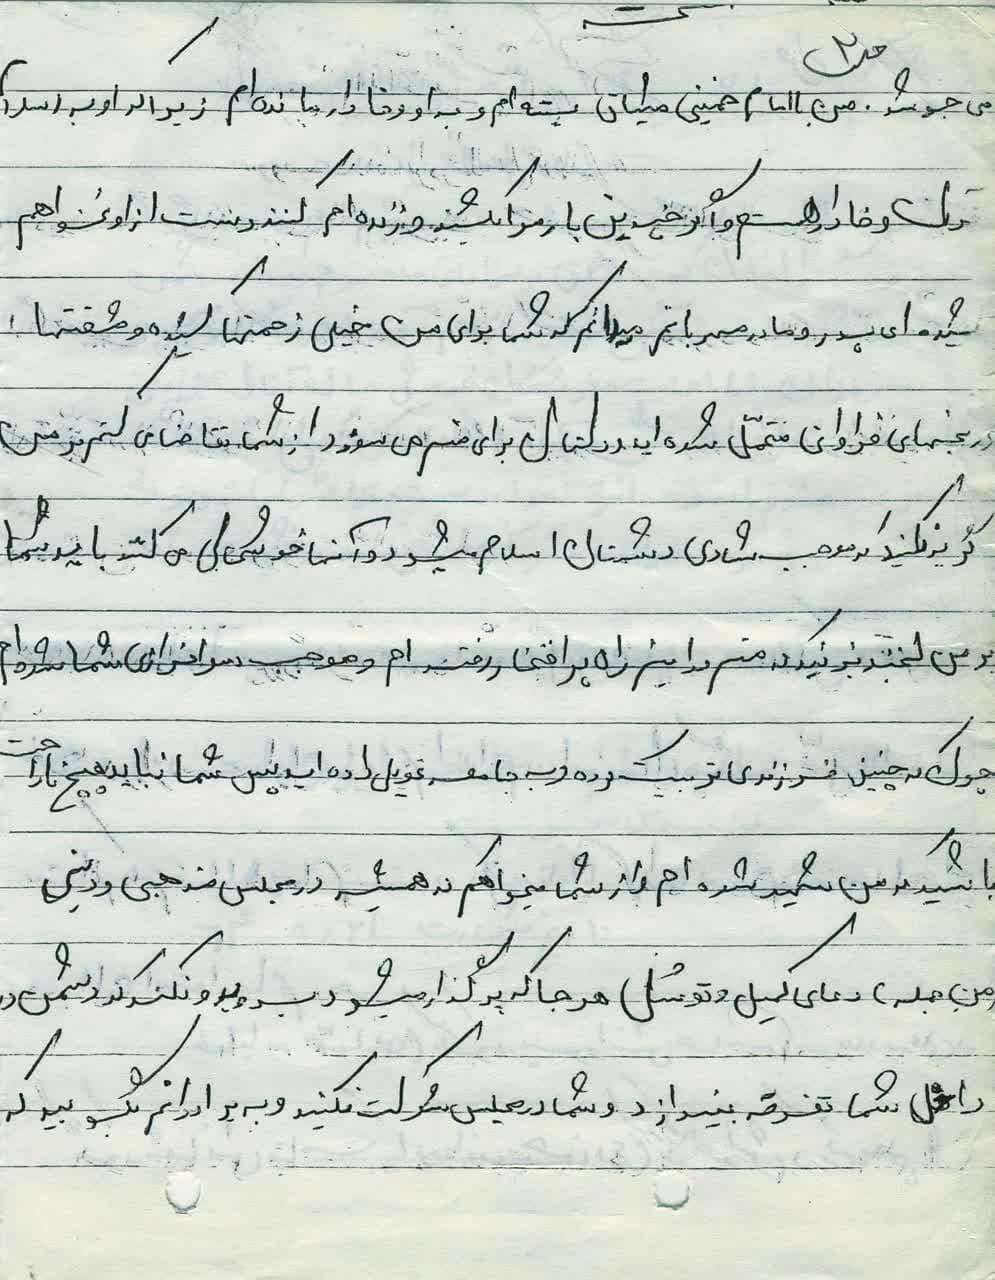 ص ۲
می جوشد. من با امام خمینی میثاق بسته ام و به او وفادار مانده ام زیرا که او به اسلام
وفادار است و اگر چندین بار مرا بکشند و زنده ام کنند دست از او نخواهم
کشید ای پدر و مادر مهربانم میدانم که شما برای من خیلی زحمتها کشیده و مشقتها
و رنجهای فراوانی متحمل شده اید از شما تقاضای کنم بر من
گریه نکنید که موجب شادی دشمنان اسلام میشود و آنها خوشحالی می کنند باید شما
بر من لبخند بزنید که منهم در این راه پر افتخار رفته ام و موجب سرافرازی شما شده ام
چون که چنین فرزندی تربیت کرده و به جامعه تحویل داده اید پس شما نباید هیچ ناراحت
باشید که من شهید شده ام و از شما میخواهم که همیشه در مجلس مذهبی و دینی
(من جمله) دعای کمیل و توسل) هر جا که برگذار میشود بروید و نکند که دشمن در
داخل شما تفرقه بیندازد و شما در مجلس شرکت نکنید و به برادرانم بگوئید که